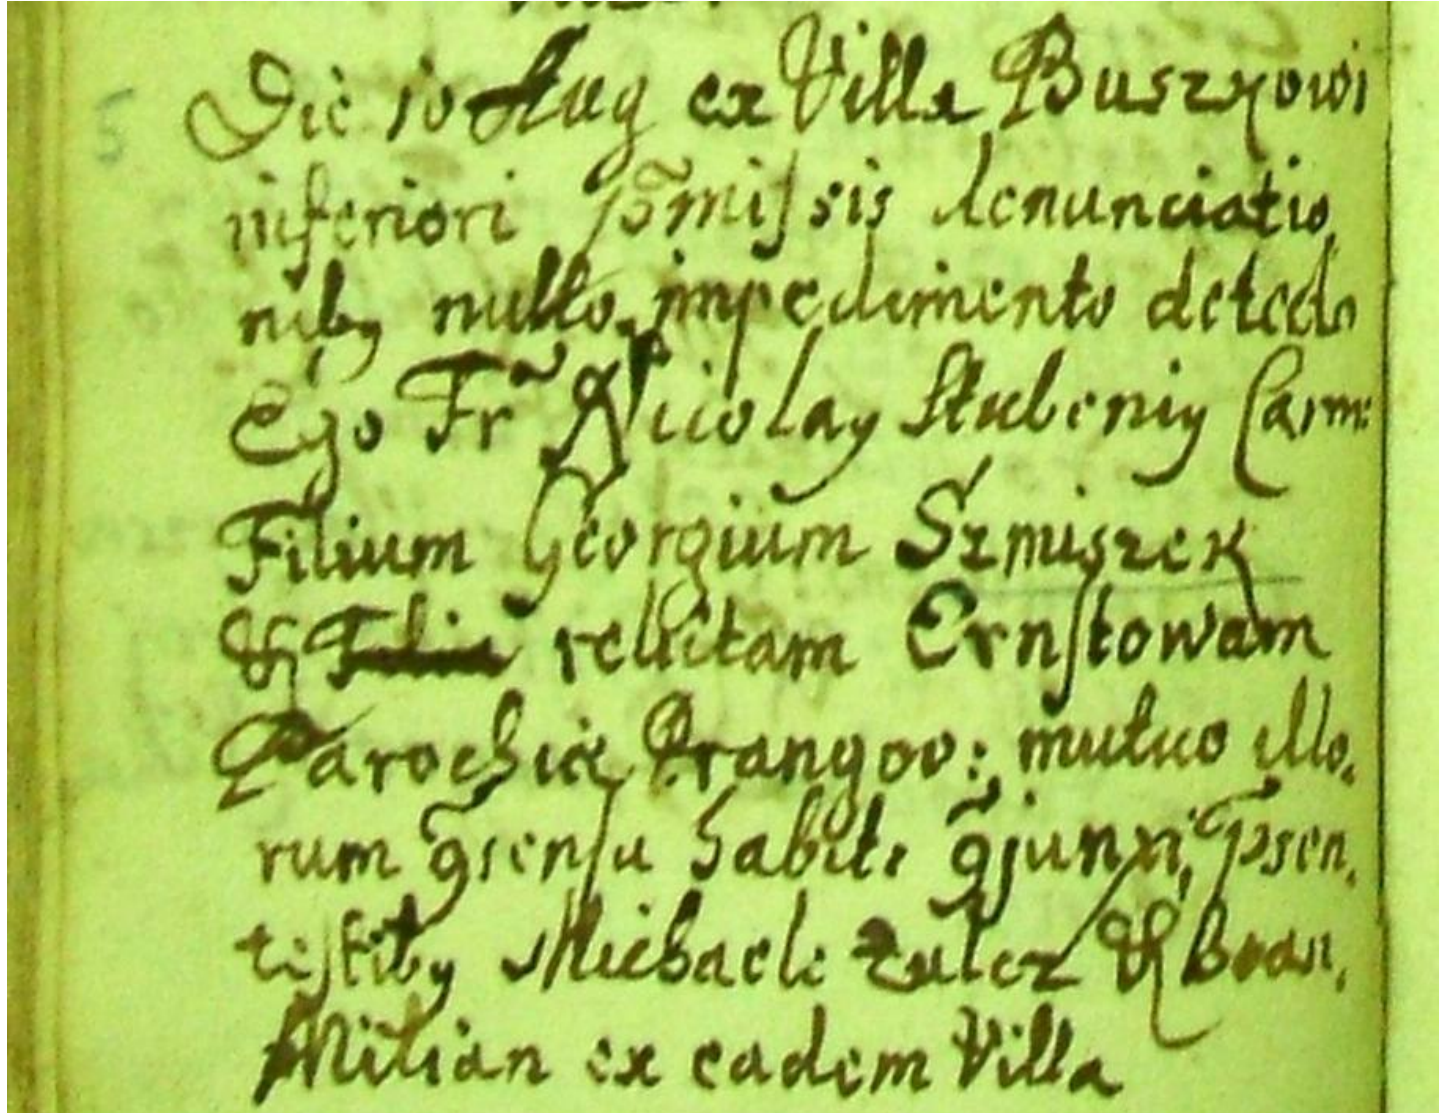 5 Die 10 Aug ex Villa Buszkowi
inferiori p̃missis denunciatio,
nibꝫ nullo impedimento detecto
Ego Fr̃ Nicolaꝫ Stubeniꝫ Carm:
Filium Georgium Szmiszek
& relictam Ernstowam
Parochiæ Prangov: mutuo illo,
rum ꝯsensu habito ꝯjunxi, p̃sen,
testibꝫ Michaele Zulcz &
Milian ex eadem Villa